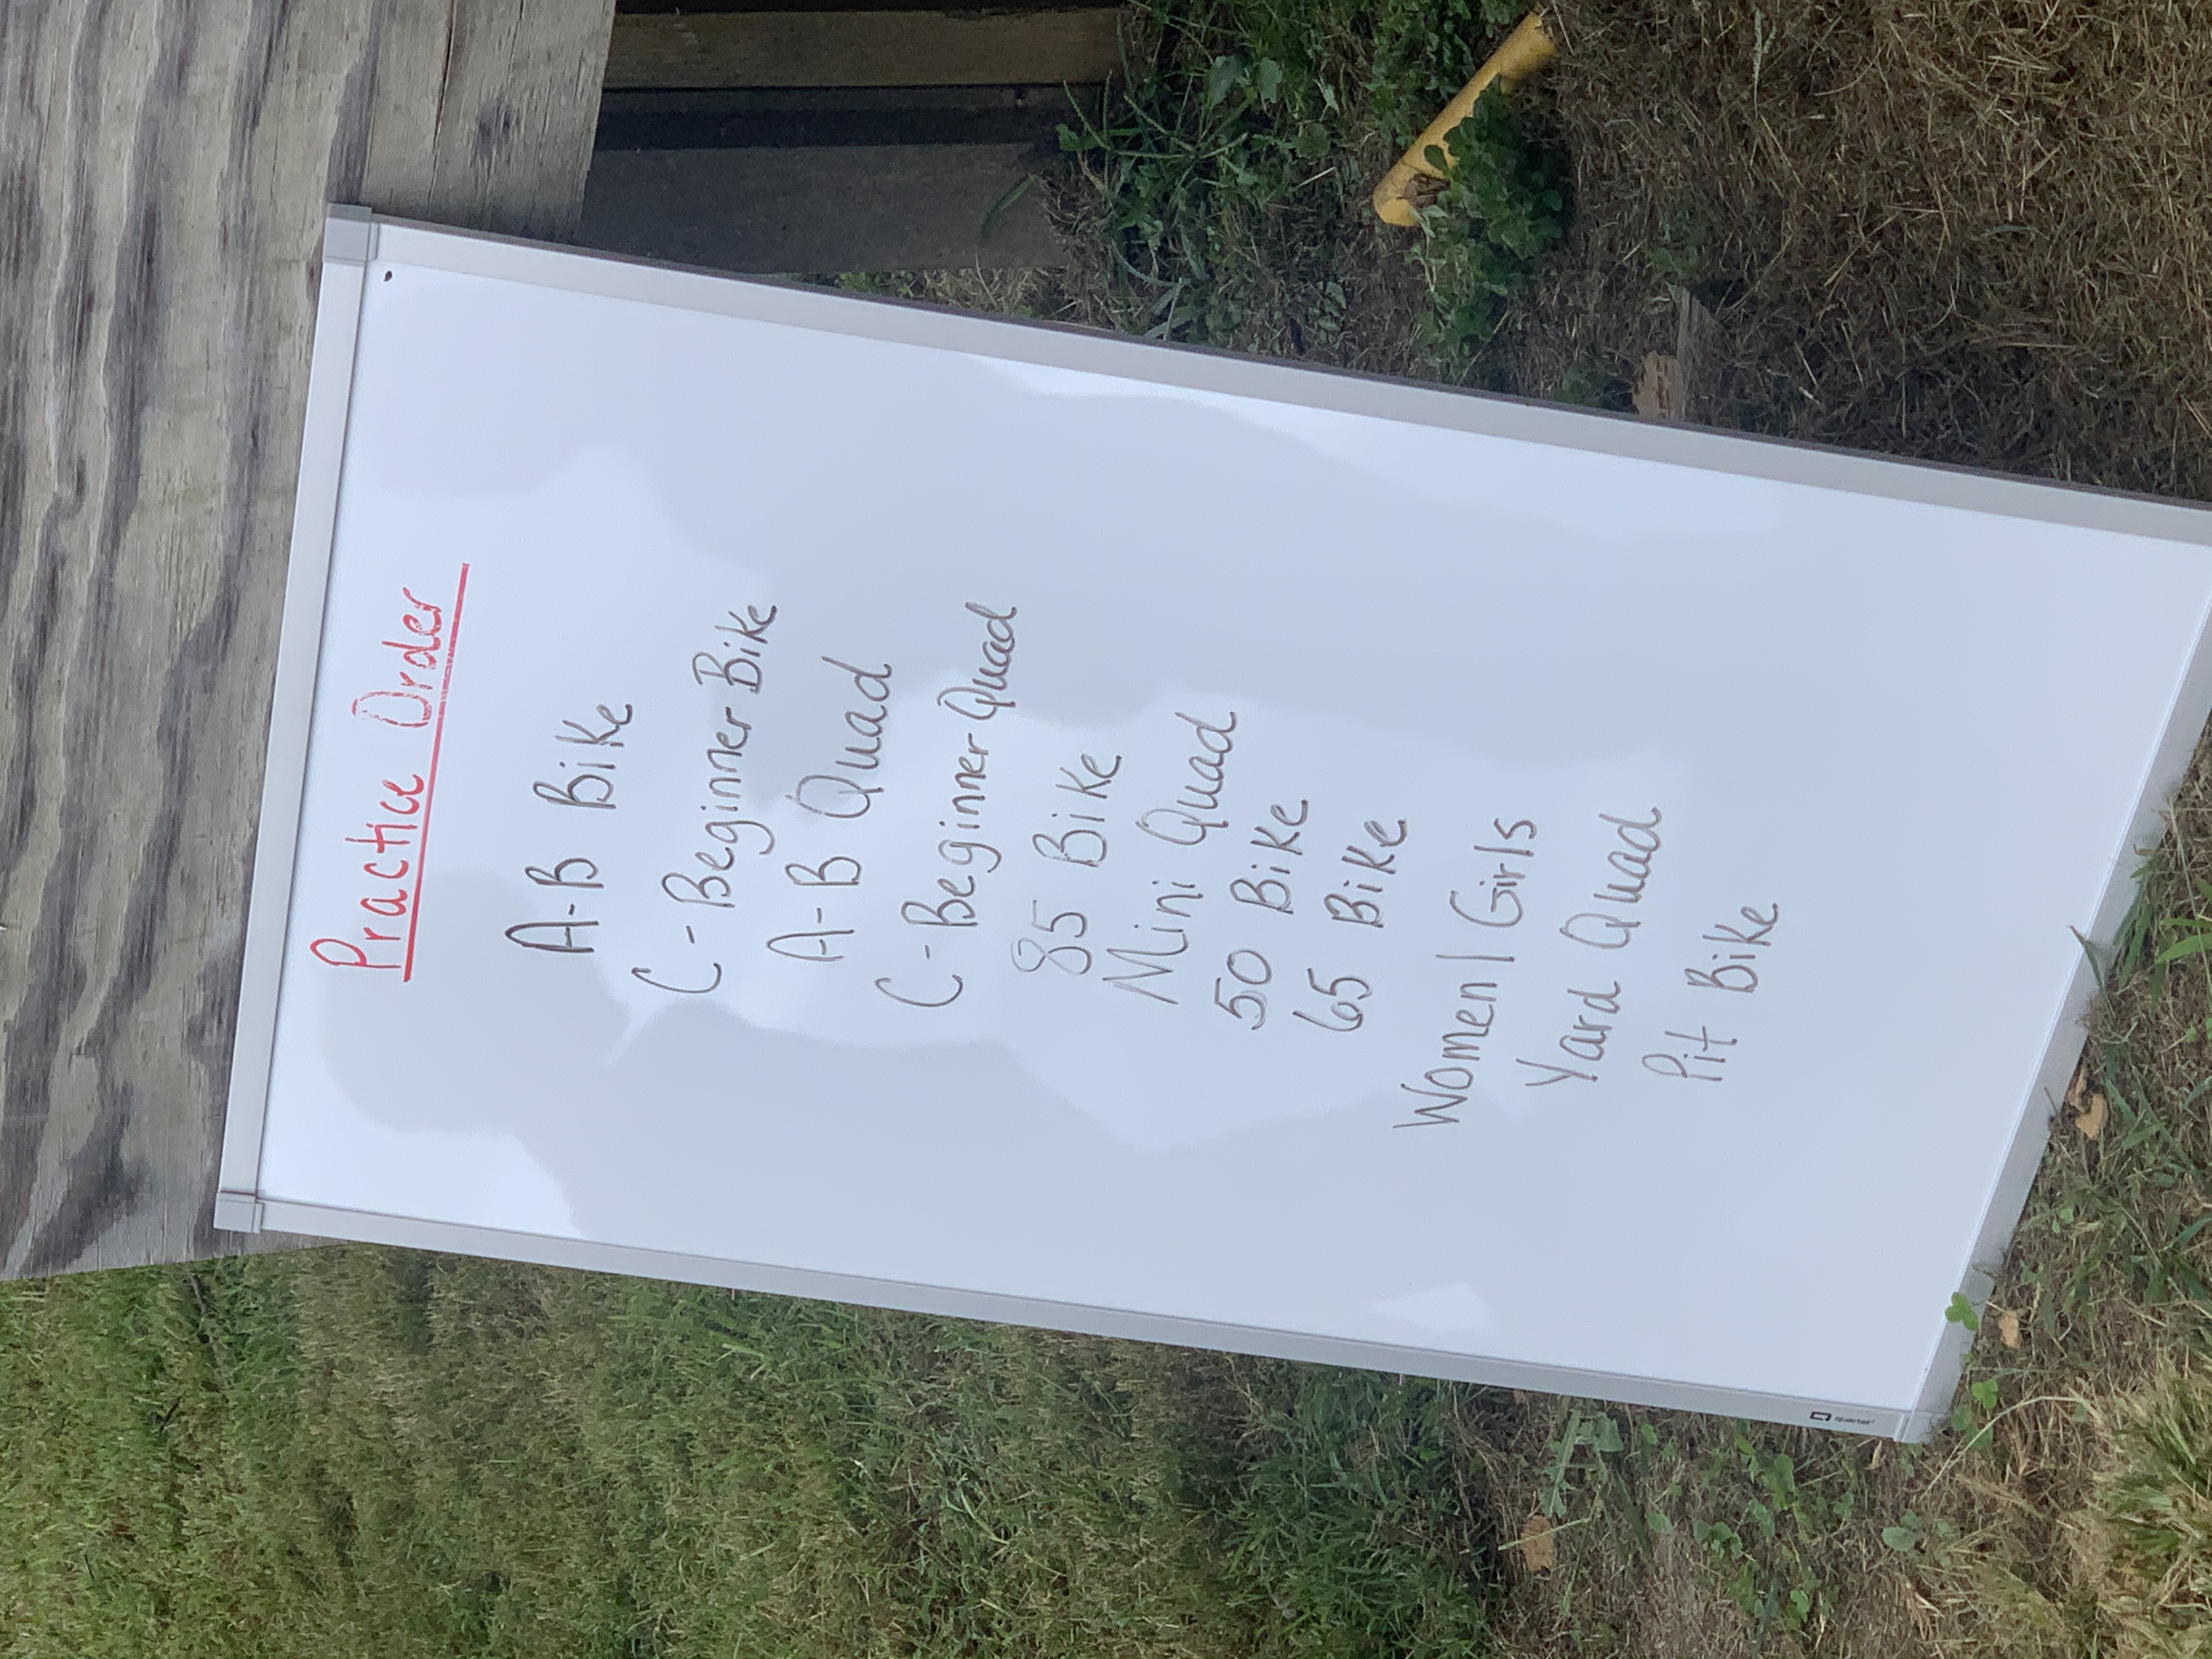 Practice Order
A-B Bike
C-Beginner Bike
A-B Quad
C-Beginner Quad
85 Bike
Mini Quad
50 Bike
65 Bike
Women | Girls
Yard Quad
Pit Bike
quartet